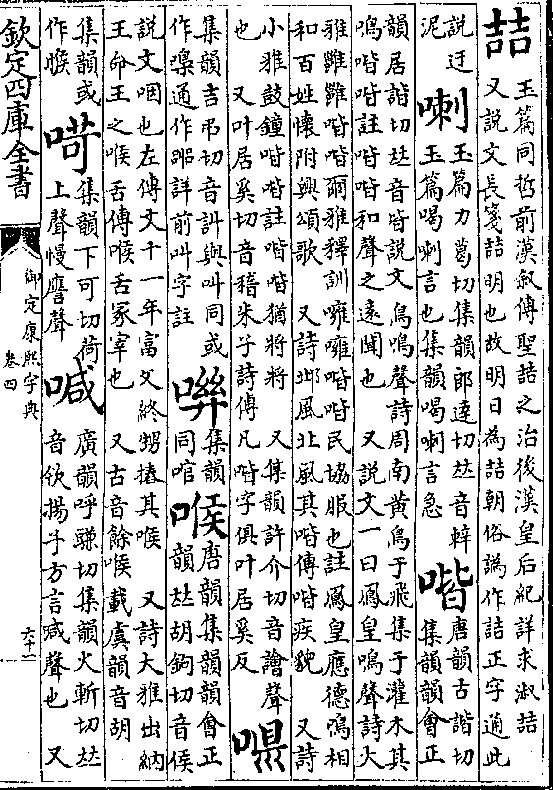 喆
玉篇同哲前漢叙傳聖喆之治後漢皇后紀詳求淑喆
又説文長箋喆明也故明日為喆朝俗譌作詰正字通此
説迂
泥
喇
玉篇力葛切集韻郎達切𠀤音辢
玉篇喝喇言也集韻喝喇言急
喈
唐韻古諧切
集韻韻會正
韻居諧切𠀤音皆説文鳥鳴聲詩周南黄鳥于飛集于灌木其
鳴喈喈註喈喈和聲之遠聞也 又説文一曰鳳皇鳴聲詩大
雅雝雝喈喈爾雅釋訓噰噰喈喈民協服也註鳳皇應德鳴相
和百姓懷附興頌歌 又詩邶風北風其喈傳喈疾貌 又詩
小雅鼓鐘喈喈註喈喈猶將將 又集韻許介切音譮聲
也 又叶居奚切音稽朱子詩傳凡喈字俱叶居奚反
集韻吉弔切音訆與叫同或
作 通作 詳前叫字註
集韻
同
喉
唐韻集韻韻會正
韻𠀤胡鉤切音侯
説文咽也左傳文十一年富父終甥摏其喉 又詩大雅出納
王命王之喉舌傳喉舌冢宰也 又古音餘喉載虞韻音胡
集韻或
作
集韻下可切荷
上聲慢譍聲
喊
廣韻呼豏切集韻火斬切𠀤
音欦揚子方言喊聲也 又
欽定四庫全書
御定康熙字典
卷四
六十二